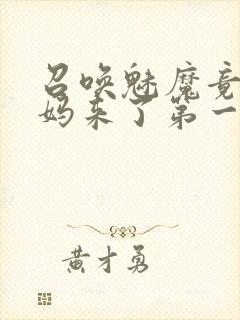 召唤魅魔竟
妈来了第一
黄才勇